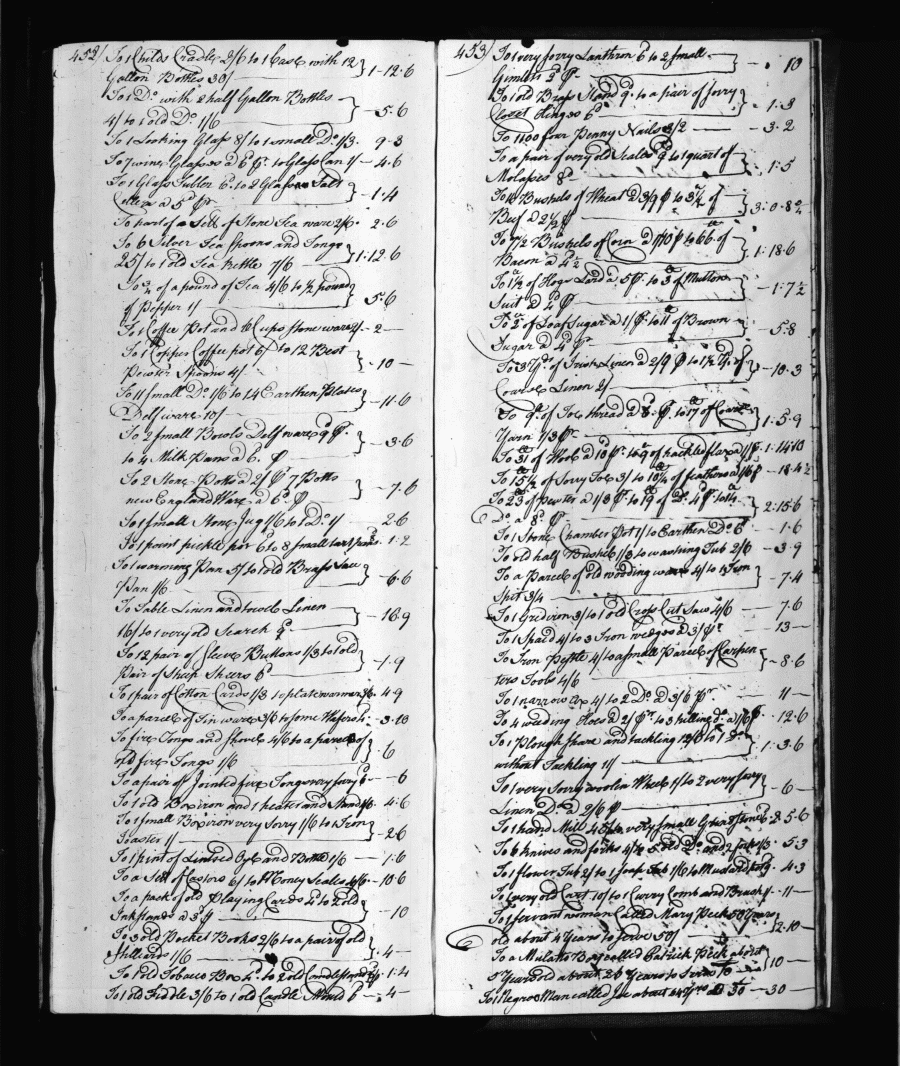 452/ To 1 Childs Cradle 2/6 to 1 Case with 12 } 1-12.6
Gallon Bottles 30/
To 1 Do. with 2 half Gallon Bottles } -5.6
4/ to 1 old Do. 1/6
To 1 Looking Glass 8/ to 1 small Do. 1/3. 9-3
To 7 wine Glasses a 6 to 1 Glass Can 1/ - 4.6
To 1 Glass Tubler 6d. to 2 Glass Salt } - 1.4
a 5d
To part of a Sett of Stone Tea ware 2/6. 2.6
To 6 Silver Tea Spoons and Tongs } 1:12.6
25/ to 1 old Tea Kettle 7/6
To ¾ of a pound of Tea 4/6 to ½ pound } 5.6
of Pepper 1/
To 1 Coffee Pot and 16 Cups stone ware - 2 -
To 1 Copper Coffee pot 6/ to 12 Best } - 10 -
Pewter Spoons 4/
To 11 small Do. 1/6 to 14 Earthen Plates } - 11.6
Delf ware 10/
To 2 small Bowls Delf ware 9 } - 3.6
to 4 Milk Pans a 6.
To 2 Stone Potts a 2/ 7 Potts } - 7.6
new England Ware a 6d.
To 1 small Stone Jug 1/6 to 1 Do. 1/ 2.6
To 1 point pickle pot 6 to 8 small tart pans. 1.2
To 1 warming Pan 5/ to 1 old Brass Sauce } - 6.6
Pan 1/6
To Table Linen and towel Linen } - 16.9
16/ to 1 very old Search 9
To 12 pair of Sleeve Buttons 1/3 to 1 old } - 1.9
Pair of Sheep Sheers 6d
To 1 pair of Cotton Cards 1/3 1 plate warmer 4.9
To a parcel of Tin ware 3/6 to some Wafers 4. 3.10
To fire Tongs and shovel 4/6 to a parcel of } . 6
old fire Tongs 1/6
To a pair of Jointed fire Tongs very sorry 6 - - 6
To 1 old Box iron and 1 heater and Stand 4.6
To 1 small Box iron very Sorry 1/6 to 1 Iron } 2.6
Toaster 1/
To 1 pint of Linseed Oyl and Bottle 1/6 - 1.6
To a Sett of Castors 6/ to Money Scales 4/6 - 10.6
To a pack of old Playing Cards 4d to 2 old } - 10
Inkstands a 3d
To 3 old Pocket Books 2/6 to a pair of old } 4 -
Stillards 1/6
To 1 old Tobacco Box 4d. to 2 old Candlesticks 1.4
To 1 old Fiddle 3/6 to 1 old Candle Mould 6 - 4 -
453/ To 1 very sorry Lanthron 6 to 2 small } - . 10
Gimlets 2d
To 1 old Brass Stand 9. to a pair of sorry } 1.3
Closet Hinges 6d
To 1100 four Penny Nails 3/2 - 3.2
To a pair of very old Scales 9 to 1 quart of } 1.5
Molases 8d
To Bushels of Wheat a 3/9 to of } 3.0.8
Beef a 2½
To 7½ Bushels of Corn a to 66 of } 1.18.6
Bacon a 4½
To 1½ of Hogs Lard a 5 to 3 of Mutton } - 1.7½
Suit a 4
To 2 of Loaf Sugar a 1/ to 11 of Brown } 5.8
Sugar a 4
To 3 yds. of Irish Linen a 2/9 to 1½ yd. of } - 10.3
Coarse Linen 2/
To of Toe thread a 8. to 17 of Coarse } 1.5.9
Yarn 1/3
To 31 of Wool a 10 to 9 of hackled flax a 1/
To 15½ of Sorry Toe 3/ to 10¼ of feathers a - 18.4½
To 23 of pewter a 1/3 to 19 of Do. 4 to 14 } 2.15.6
Do. a 8d.
To 1 Stone Chamber Pot 1/ to Earthen Do. 6 - 1.6
To old half Bushel 1/3 to washing Tub 2/6 - 3.9
To a Parcel of old wooding ware 4/ to 1 Iron } - 7.4
Spit 3/4
To 1 Gridiron 3/ to 1 old Cross Cut Saw 4/6 - 7.6
To 1 Spaid 4/ to 3 Iron wedges a 3/ - 13 -
To Iron Pestle 4/ to a small Parcel of Carpen } - 8.6
ters Tools 4/6
To 1 narrow ax 4/ to 2 Do a 3/6 - 11 -
To 4 weeding Hoes a 2/ to 3 hilling do. a 1/6 - 12.6
To 1 Plough share and tackling 12/6 to 1 Do } 1.3.6
without Tackling 11/
To 1 very Sorry woolin Wheel 1/ to 2 very sorry } - 6 -
Linen Do. a 2/6
To 1 hand Mill to a very small Grindstone 2.5.6
To 6 knives and forks 4/ 5 old Do. and 2 forks 1/3. 5.3
To 1 flower Tub 2/ to 1 soap Tub 1/6 to Mustard pot 9. 4.3
To 1 very old Cart 10/ to 1 Curry Comb and Brush 1/ - 11 -
To 1 servant woman Called Mary Peck 50 Years } 2.10
old about 4 Years to serve 50/
To a Mulatto Boy called Patrick Peck about } 10 -
5 Years old about 26 Years to Serve 10
To 1 Negroe Man called Joe about 44 Yrs a 30 - 30 -